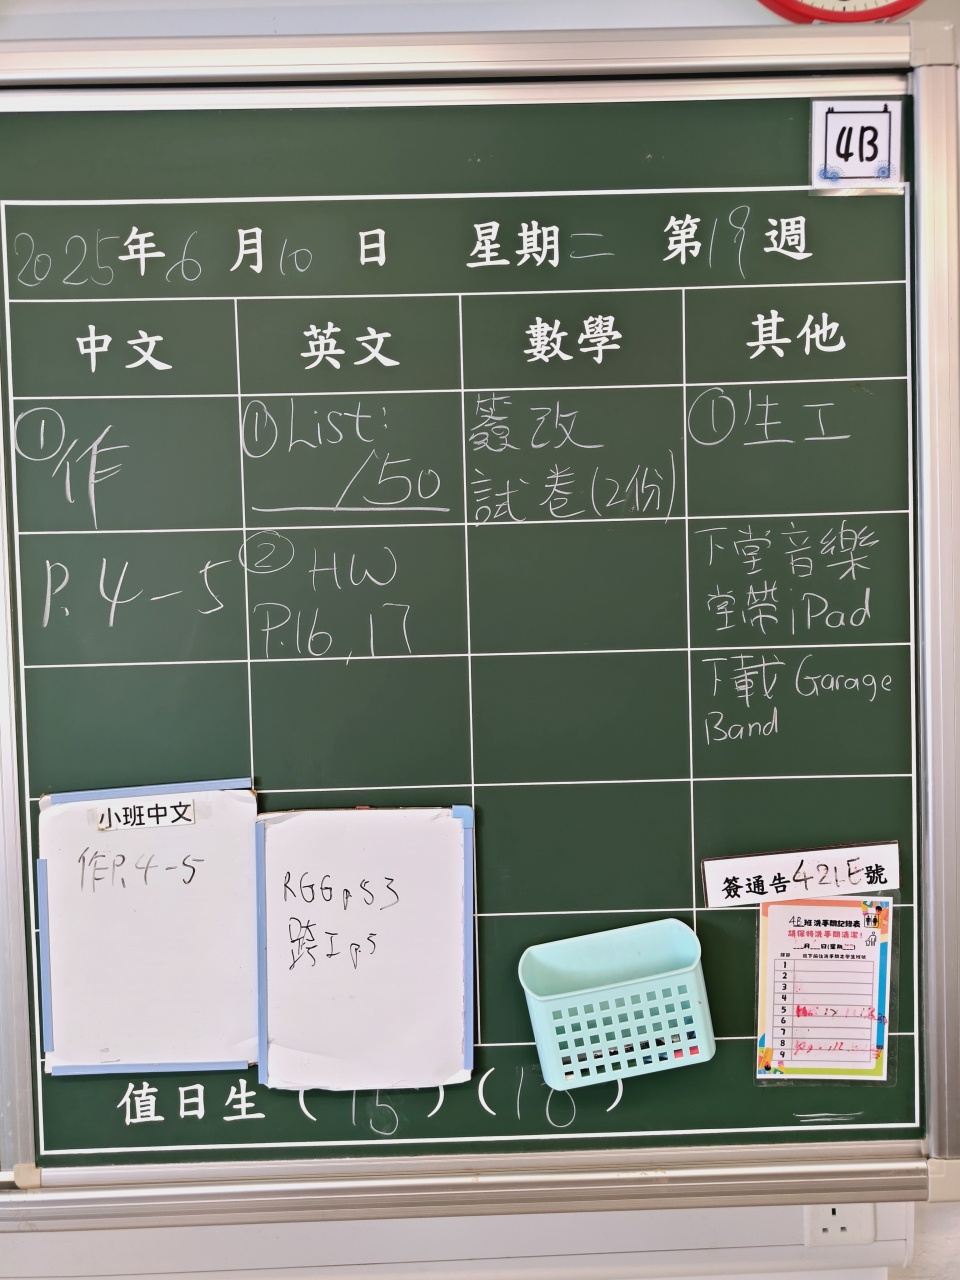 4B
2025年6月10日 星期二 第19週
中文 英文 數學 其他
①作
P.4-5
①List:
/50
②HW
P.16,17
簽改
試卷(2份)
①生工
下堂音樂
堂帶iPad
下載Garage
Band
小班中文
作P.4-5
RGG p.53
跨工p.5
簽通告421E號
4B班洗手間記錄表
請保持洗手間清潔!
月 日(星期 )
1
2
3
4
5
6
7
8
9
值日生(15)(18)